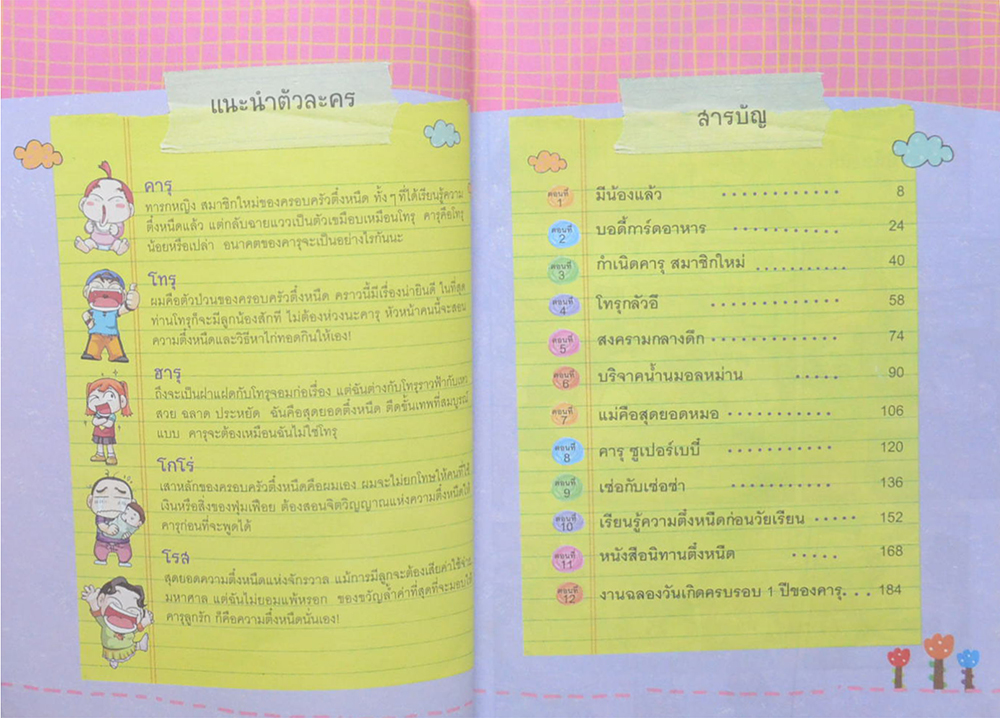 แนะนำตัวละคร
คารุ
ทารกหญิง สมาชิกใหม่ของครอบครัวตึ๋งหนืด ทั้งๆที่ได้เรียนรู้ความ
ตึ๋งหนืดแล้ว แต่กลับฉายแววเป็นตัวเขมือบเหมือนโทรุ คารุคือโทรุ
น้อยหรือเปล่า อนาคตของคารุจะเป็นอย่างไรกันนะ
โทรุ
ผมคือตัวป่วนของครอบครัวตึ๋งหนืด คราวนี้มีเรื่องน่ายินดี ในที่สุด
ท่านโทรุก็จะมีลูกน้องสักที ไม่ต้องห่วงนะคารุ หัวหน้าคนนี้จะสอน
ความตึ๋งหนืดและวิธีหาไก่ทอดกินให้เอง!
ฮารุ
ถึงจะเป็นฝาแฝดกับโทรุจอมก่อเรื่อง แต่ฉันต่างกับโทรุราวฟ้ากับเหว
สวย ฉลาด ประหยัด ฉันคือสุดยอดตึ๋งหนืด ตืดขั้นเทพที่สมบูรณ์
แบบ คารุจะต้องเหมือนฉันไม่ใช่โทรุ
โกโร่
เสาหลักของครอบครัวตึ๋งหนืดคือผมเอง ผมจะไม่ยกโทษให้คนที่ใช้
เงินหรือสิ่งของฟุ่มเฟือย ต้องสอนจิตวิญญาณแห่งความตึ๋งหนืดให้
คารุก่อนที่จะพูดได้
โรส
สุดยอดความตึ๋งหนืดแห่งจักรวาล แม้การมีลูกจะต้องเสียค่าใช้จ่าย
มหาศาล แต่ฉันไม่ยอมแพ้หรอก ของขวัญล้ำค่าที่สุดที่จะมอบให้
คารุลูกรัก ก็คือความตึ๋งหนืดนั่นเอง!
สารบัญ
ตอนที่ 1 มีน้องแล้ว ............ 8
ตอนที่ 2 บอดี้การ์ดอาหาร ........... 24
ตอนที่ 3 กำเนิดคารุ สมาชิกใหม่ ........... 40
ตอนที่ 4 โทรุกลัวอึ ............ 58
ตอนที่ 5 สงครามกลางดึก ............ 74
ตอนที่ 6 บริจาคน้ำนมอลหม่าน ..... 90
ตอนที่ 7 แม่คือสุดยอดหมอ ........... 106
ตอนที่ 8 คารุ ซูเปอร์เบบี๋ ........... 120
ตอนที่ 9 เซ่อกับเซ่อซ่า ............ 136
ตอนที่ 10 เรียนรู้ความตึ๋งหนืดก่อนวัยเรียน ..... 152
ตอนที่ 11 หนังสือนิทานตึ๋งหนืด ..... 168
ตอนที่ 12 งานฉลองวันเกิดครบรอบ 1 ปีของคารุ... 184